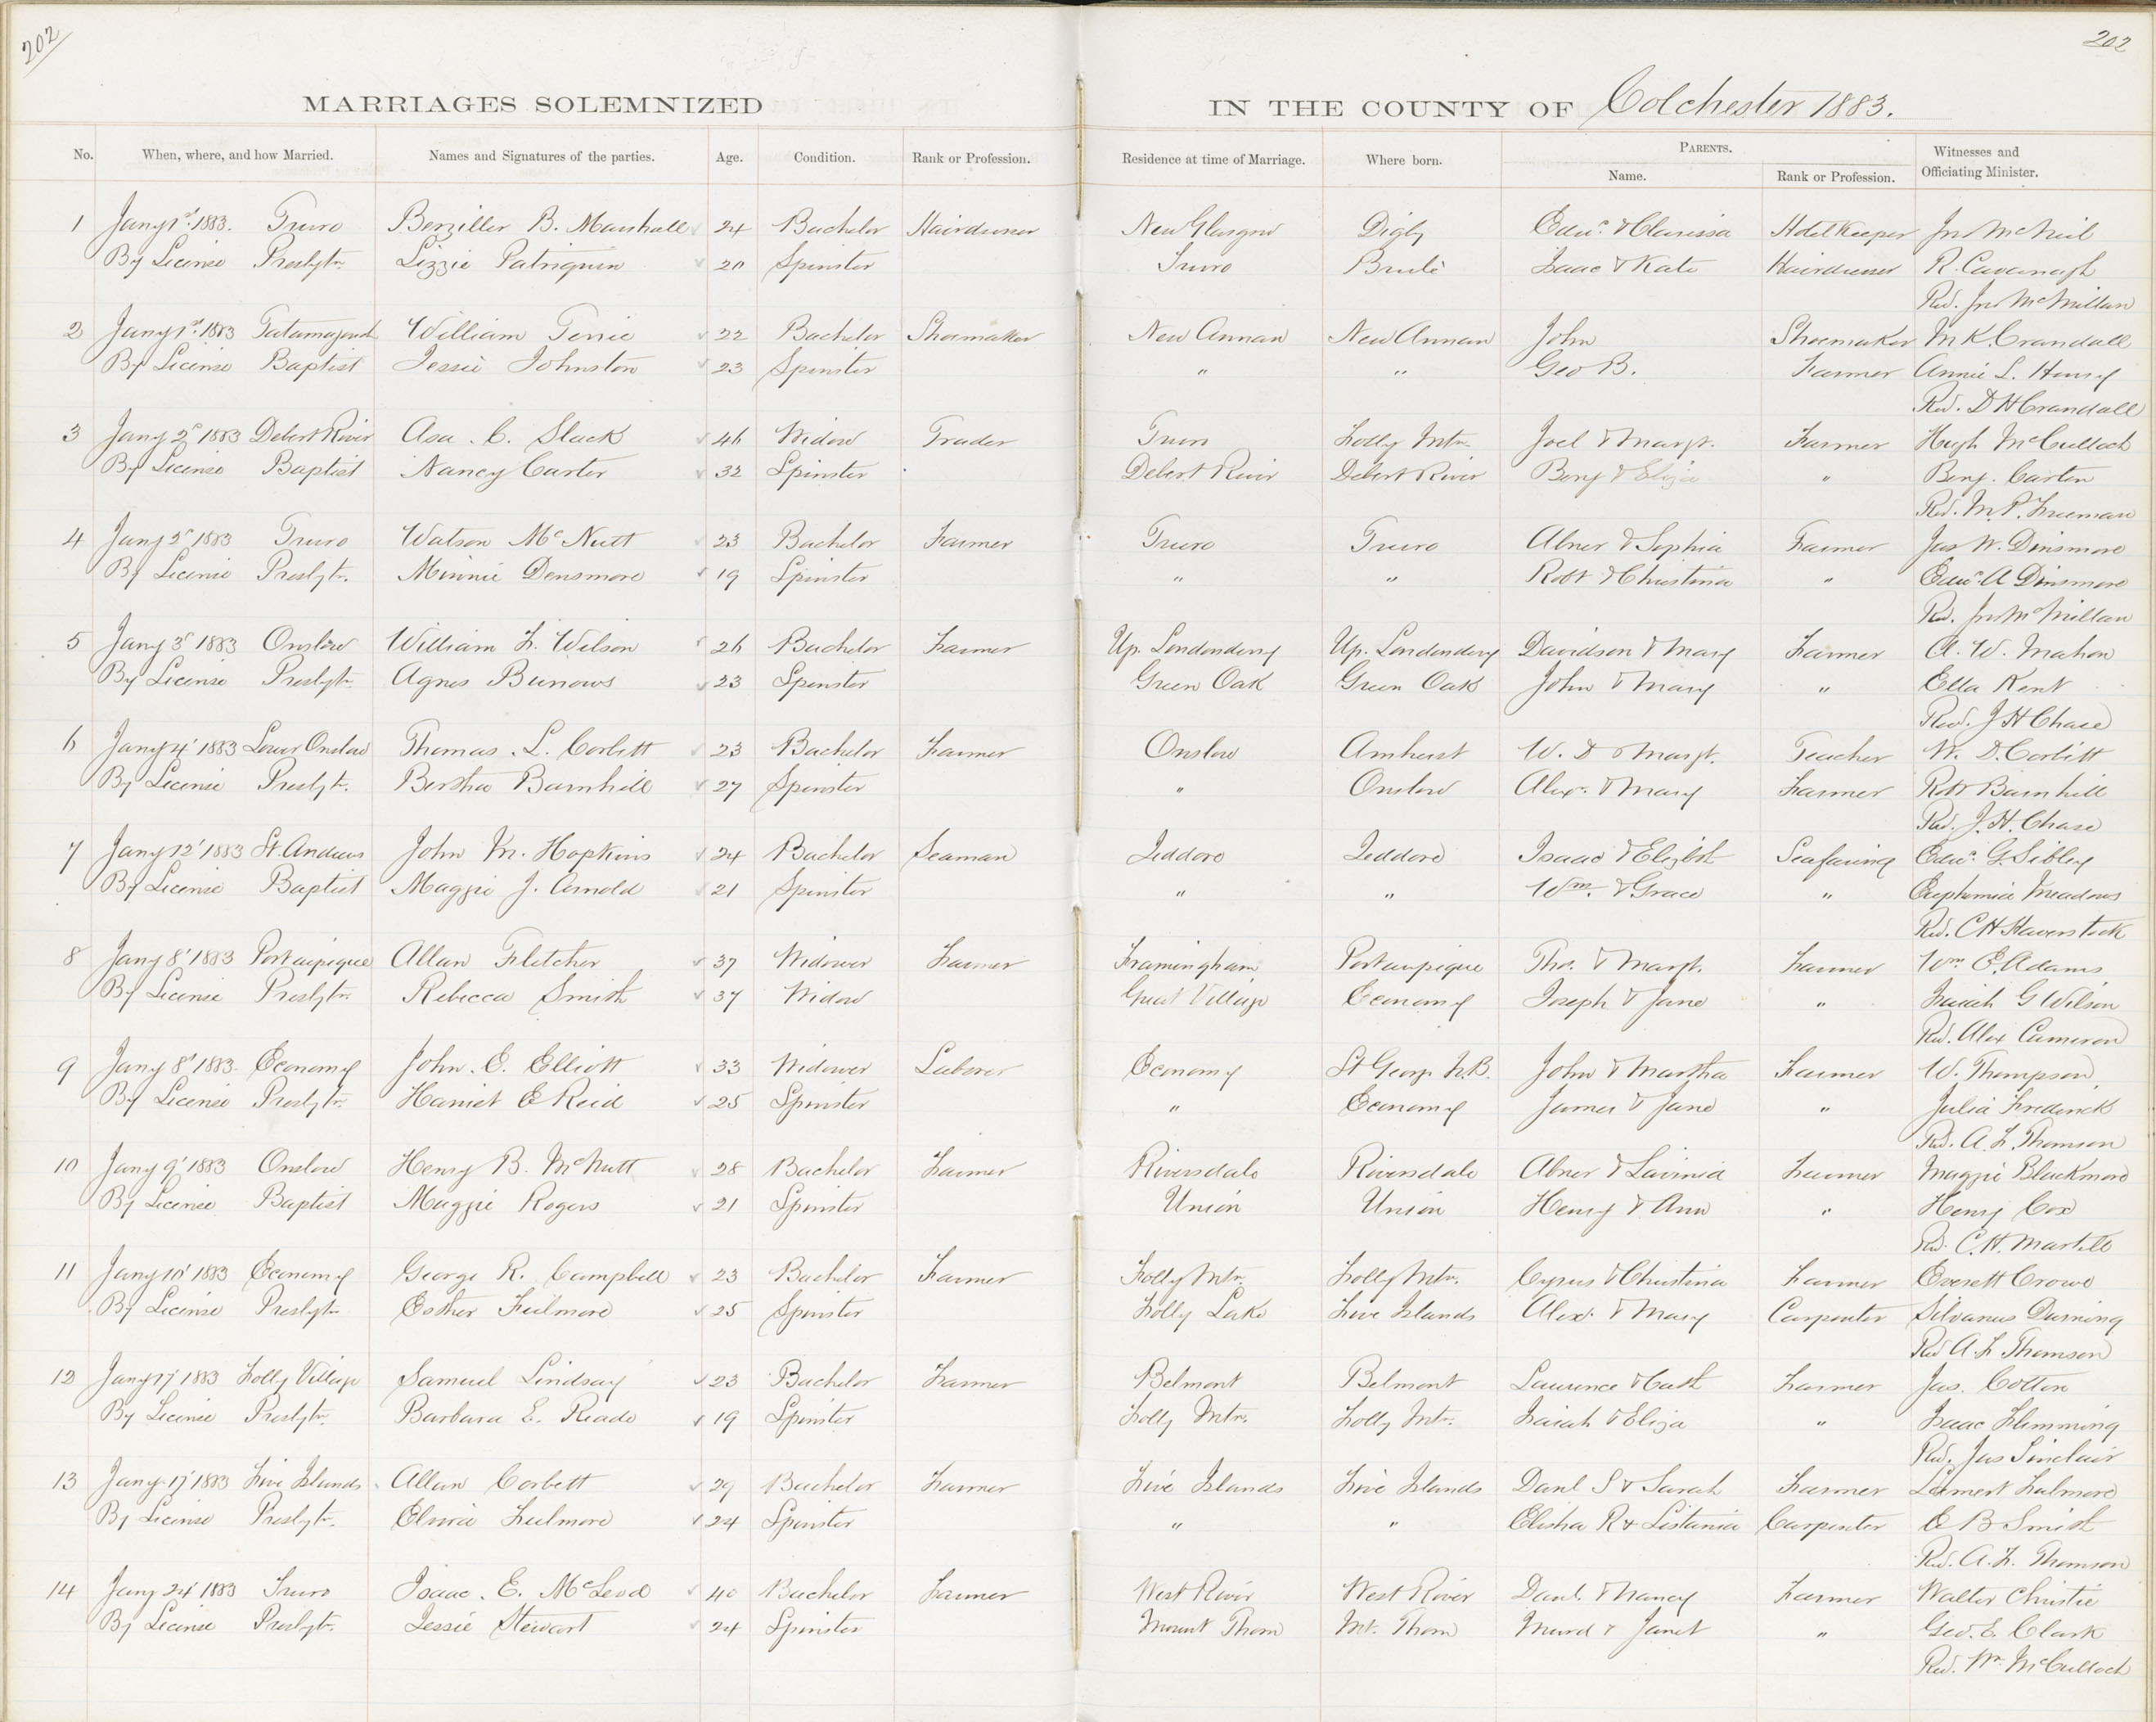 202
202
MARRIAGES SOLEMNIZED IN THE COUNTY OF Colchester 1883.
No. When, where, and how Married. Names and Signatures of the parties. Age. Condition. Rank or Profession. Residence at time of Marriage. Where born. PARENTS. Witnesses and Officiating Minister.
Name. Rank or Profession.
1 Jany 1st 1883. Truro Berziller B. Marshall 24 Bachelor Hairdresser New Glasgow Digby Edwd. & Clarissa Hotel Keeper Jno McNeil
By License Presbytn. Lizzie Patriquin 20 Spinster Truro Brulé Isaac & Kate Hairdresser R. Cavanagh
Rev. Jno McMillan
2 Jany 1st 1883 William 22 Bachelor Shoemaker New Annan New Annan John Shoemaker M K. Crandall
By License Baptist Jessie Johnston 23 Spinster " " Geo B. Farmer Annie L. Henry
Rev. D H Crandall
3 Jany 2d 1883 Debert River Asa. C. Slack 46 Widow Trader Truro Folly Mtn. Joel & Margt. Farmer Hugh McCulloch
By License Baptist Nancy Carter 32 Spinster Debert River Debert River Benj & Eliza " Benj. Carter
Rev. M. P. Freeman
4 Jany 2d 1883 Truro Watson McNutt 23 Bachelor Farmer Truro Truro Abner & Sophia Farmer Jas W. Dinsmore
By License Presbytn. Minnie Densmore 19 Spinster " " Robt & Christina " Edwd. A Dinsmore
Rev. Jno McMillan
5 Jany 3d 1883 Onslow William F. Wilson 26 Bachelor Farmer Up. Londonderry Up. Londonderry Davidson & Mary Farmer A. W. Mahon
By License Presbytn. Agnes Burrows 23 Spinster Green Oak Green Oak John & Mary " Ella Kent
Rev. J H Chase
6 Jany 4' 1883 Lower Onslow Thomas. L. Corbett 23 Bachelor Farmer Onslow Amherst W. D & Margt. Teacher W. D. Corbitt
By License Presbytn. Bertha Barnhill 27 Spinster " Onslow Alex. & Mary Farmer Robt Barnhill
Rev. J. H. Chase
7 Jany 12' 1883 St. Andrews John M. Hopkins 24 Bachelor Seaman Jeddore Jeddore Isaac & Elizbth Seafaring Edwd. G. Sibley
By License Baptist Maggie J. Arnold 21 Spinster " " Wm. & Grace " Euphemia Meadows
Rev. C H Haverstock
8 Jany 8' 1883 Portaupique Allan Fletcher 37 Widower Farmer Framingham Portaupique Thos. & Margt. Farmer Wm E. Adams
By License Presbytn Rebecca Smith 37 Widow Great Village Economy Joseph & Jane " Isaiah G Wilson
Rev. Alex Cameron
9 Jany 8' 1883. Economy John. E. Elliott 33 Widower Laborer Economy St George N.B. John & Martha Farmer W. Thompson
By License Presbytn. Harriet E Reid 25 Spinster " Economy James & Jane " Julia Frederick
Rev. A. F. Thomson
10 Jany 9' 1883 Onslow Henry B. McNutt 28 Bachelor Farmer Riversdale Riversdale Abner & Lavinia Farmer Maggie Blackmore
By License Baptist Maggie Rogers 21 Spinster Union Union Henry & Ann " Henry Cox
Rev. C. H. Martell
11 Jany 10' 1883 Economy George R. Campbell 23 Bachelor Farmer Folly Mtn. Folly Mtn. Cyrus & Christina Farmer Everett Crowe
By License Presbytn Esther Fulmore 25 Spinster Folly Lake Five Islands Alex. & Mary Carpenter Silvanus Durning
Rev A. F Thomson
12 Jany 17' 1883 Folly Village Samuel Lindsay 23 Bachelor Farmer Belmont Belmont Laurence & Cath Farmer Jas. Cotton
By License Presbytn. Barbara E. Reade 19 Spinster Folly Mtn. Folly Mtn. Isaiah & Eliza " Isaac Flemming
Rev. Jas Sinclair
13 Jany 17' 1883 Five Islands Allan Corbett 29 Bachelor Farmer Five Islands Five Islands Danl S & Sarah Farmer Fulmore
By License Presbytn. Elvira Fulmore 24 Spinster " " Elisha R & Carpenter E B Smith
Rev. A. F. Thomson
14 Jany 24' 1883 Truro Isaac. E. McLeod 40 Bachelor Farmer West River West River Danl. & Nancy Farmer Walter Christie
By License Presbytn. Jessie Stewart 24 Spinster Mount Thom Mt. Thom Murd & Janet " Geo. E. Clark
Rev. Wm McCulloch